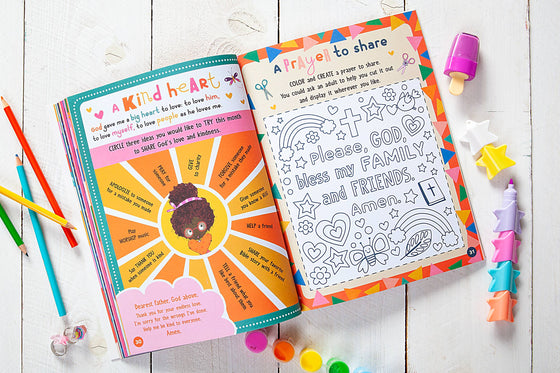 A KIND HEART
God gave me a big heart to love: to love him,
to love myself, to love people as he loves me.
CIRCLE three ideas you would like to TRY this month
to SHARE God's love and kindness.
GIVE
to charity
FORGIVE someone
for a mistake they made
Give someone
you know a HUG
HELP a friend
SHARE your favorite
Bible story with a friend
TELL a friend what you
like best about them
Say THANK YOU
when someone is kind
Play
WORSHIP music
APOLOGIZE to someone
for a mistake you made
PRAY for
someone
Dearest Father, God above,
Thank you for your endless love.
I'm sorry for the wrongs I've done.
Help me be kind to everyone.
Amen.
30
A PRAYER to share
COLOR and CREATE a prayer to share.
You could ask an adult to help you cut it out
and display it wherever you like.
Please, GOD,
bless my FAMILY
and FRIENDS.
Amen.
31